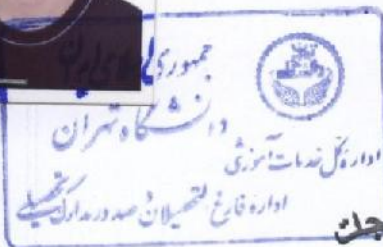 جمهوری اسلامی ایران
دانشگاه تهران
اداره کل خدمات آموزشی
اداره فارغ التحصیلان و صدور مدارک تحصیلی